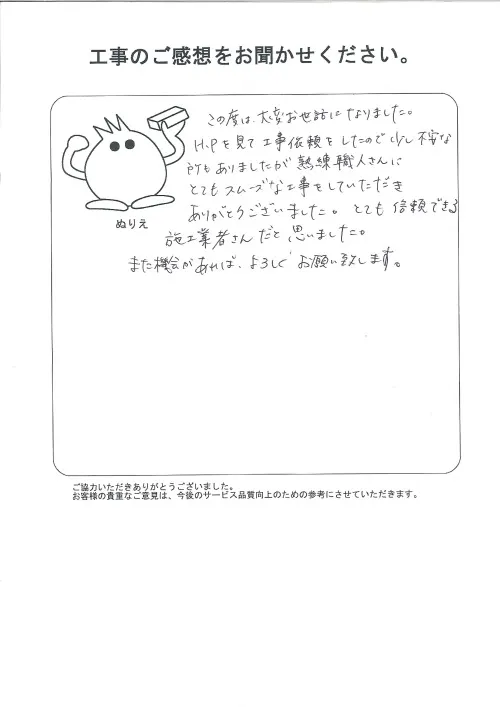 工事のご感想をお聞かせください。
この度は、大変お世話になりました。
H.Pを見て工事依頼をしたので少し不安な
所もありましたが熟練職人さんに
とてもスムーズな工事をしていただき
ありがとうございました。とても信頼できる
施工業者さんだと思いました。
また機会があれば、よろしくお願い致します。
ぬりえ
ご協力いただきありがとうございました。
お客様の貴重なご意見は、今後のサービス品質向上のための参考にさせていただきます。